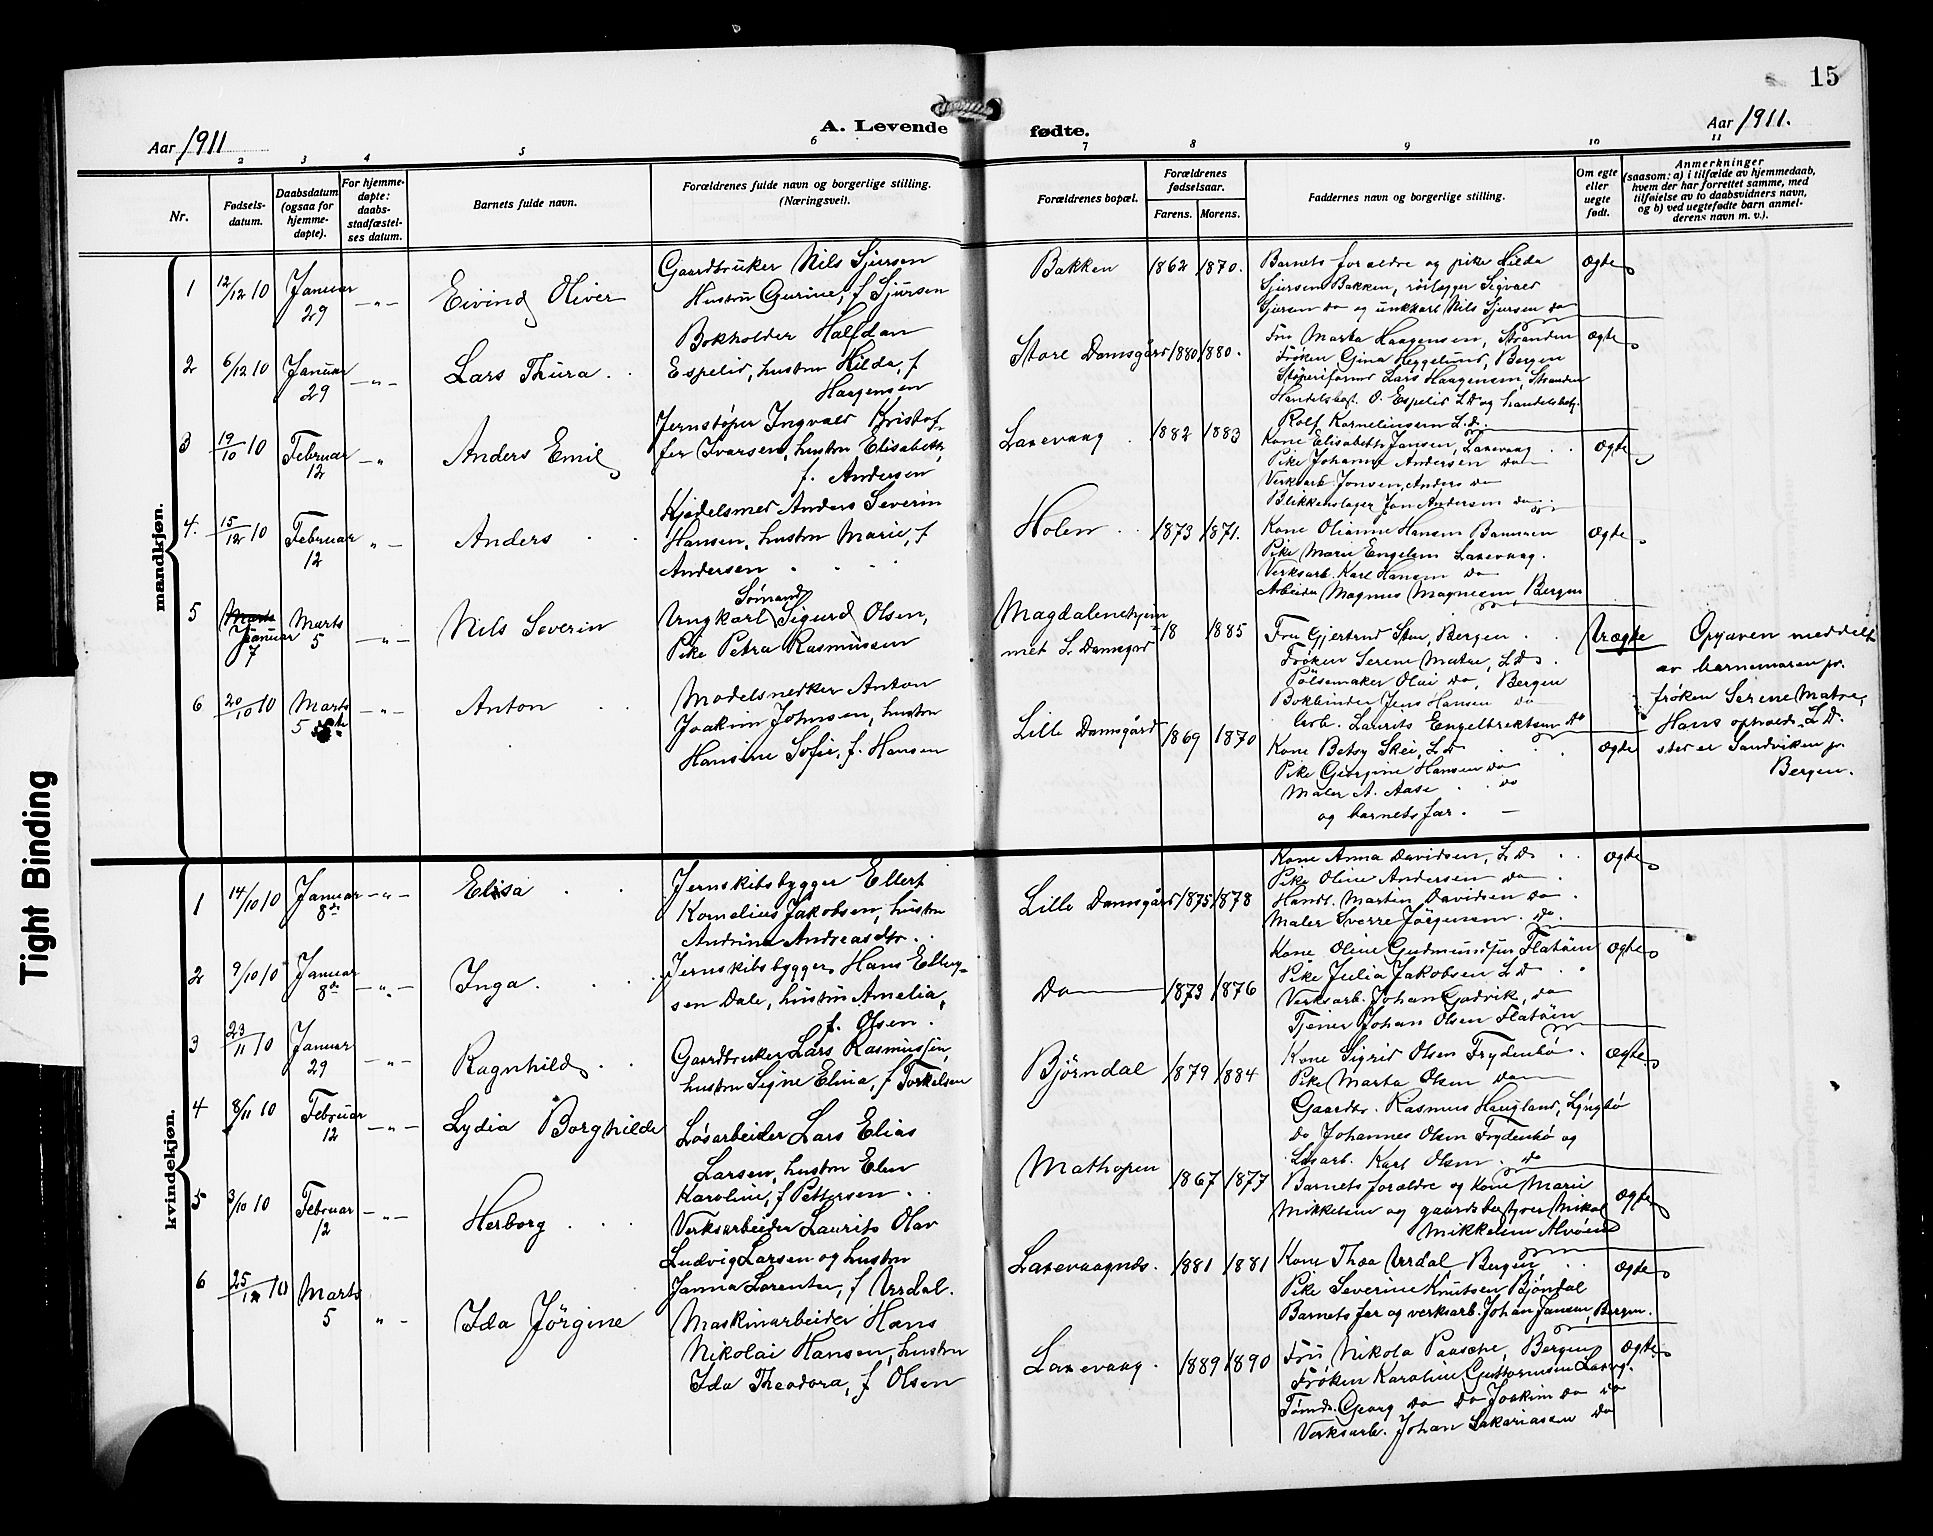 15
Aar 1911
A. Levende
fødte.
Aar 1911.
2 3 4 5 6
7 8 9 10 11
Nr.
Fødsels-
datum.
Daabsdatum
(ogsaa for
hjemme-
døpte).
For hjemme-
døpte:
daabs-
stadfæstel-
ses datum.
Barnets fulde navn.
Forældrenes fulde navn og borgerlige stilling.
(Næringsvei).
Forældrenes bopæl.
Forældrenes
fødselsaar.
Farens. Morens.
Faddernes navn og borgerlige stilling.
Om egte
eller
uegte
født.
Anmerkninger
(saasom: a) i tilfælde av hjemmedaab,
hvem der har forrettet samme, med
tilføielse av to daabsvidners navn,
og b) ved uegtefødte barn anmel-
derens navn m. v.).
mandkjøn.
1 12/12 10 Januar 29 -„- Eivind Oliver
Gaardbruker Nils Sjursen
Hustru Gurine, f. Sjursen
Bakken 1862 1870.
Barnets forældre og pike Hilda
Sjursen Bakken, rørlægger Sigvald
Sjursen do og ungkarl Nils Sjursen do
Ægte
2 6/12 10 Januar 29 -„- Lars Thura
Bokholder Halfdan
Espelid, hustru Hilda, f.
Haagensen
Store Damsgård 1880 1880.
Fru Marta Haagensen, Stranden
Frøken Gina Heggelund, Bergen
Støperiformd Lars Haagensen, Stranden
Handelsbest. O. Espelid L.D og handelsbetj.
Rolf Kornelinsen L.D.
Ægte
3 19/10 10 Februar 12 -„- Anders Emil
Jernstøper Ingvald Kristof-
fer Ivarsen, hustru Elisabeth,
f. Andersen
Laxevaag 1882 1883
Kone Elisabeth Jansen, Laxevaag
Pike Johanne Andersen do
Verksarb. Jonsen, Anders do
Blikkenslager Jon Andersen do
Ægte
4. 15/12 10 Februar 12 „- Anders
Kjedelsmed Anders Severin
Hansen, hustru Marie, f.
Andersen
Holen 1873 1871.
Kone Olianne Hansen
Pike Marie Engelsen Laxevaag.
Verksarb. Karl Hansen do
Arbeider Magnus Magnesen Bergen
Ægte
5 Marts
Januar 7 Marts 5 -„- Nils Severin
Sømand
Ungkarl Sigurd Olsen,
Pike Petra Rasmussen
Magdalenehjem-
met L. Damsgrd 18 1885
Fru Gjertrud Sten, Bergen
Frøken Serene Matre, L.D.
Pølsemaker Olai do, Bergen
Bokbinder Jens Hansen do
Arb. Laurits Engelbrektsen do
Uægte
Opgaven meddelt
av barnemoren pr.
frøken Serene Matre,
Hans opholds L.D.
sted er Sandviken pr.
Bergen.
6 20/10 10 Marts 5 -„- Anton
Modelsnedker Anton
Joakim Johnsen, hustru
Hansine Sofie, f. Hansen
Lille Damsgård 1869 1870
Kone Betsy Skei, L.D
Pike Georgine Hansen do
Maler A. Aase do
og barnets far.
Ægte
kvindekjøn.
1 14/10 10 Januar 8de -„- Elisa
Jernskibsbygger Ellert
Kornelius Jakobsen, hustru
Andrine Andreasdtr.
Lille Damsgård 1875 1878
Kone Anna Davidsen, L.D.
Pike Oline Andersen do
Handl. Martin Davidsen do
Maler Sverre Jørgensen do.
Ægte
2 9/10 10 Januar 8de -„- Inga
Jernskibsbygger Hans Elling-
sen Dale, hustru Amelia,
f. Olsen.
Do 1873 1876
Kone Oline Gudmundsen Flatøen
Pike Julia Jakobsen L.D
Verksarb. Johan Godvik, do
Tjener Johan Olsen Flatøen
Ægte
3 23/11 10 Januar 29 -„- Ragnhild
Gaardbruker Lars Rasmussen,
hustru Signe Elina, f. Torkelsen
Bjørndal 1879 1884
Kone Sigrid Olsen Frydenbø.
Pike Marta Olsen do
Gaardbr. Rasmus Haugland, Lyngbø
Do Johannes Olsen Frydenbø og
Løsarb. Karl Olsen do
Ægte
4 8/11 10 Februar 12 -„- Lydia Borghilde
Løsarbeider Lars Elias
Larsen, hustru Elen
Karoline, f. Pettersen
Mathopen 1867 1877
Barnets forældre og kone Marie
Mikkelsen og gaardsbestyrer Nikol
Mikkelsen Alvøen
Ægte
5 3/10 10 Februar 12 -„- Herborg
Verksarbeider Laurits Olav
Ludvig Larsen og hustru
Janna Lorentse, f. Urdal.
Laxevaagnes. 1881 1881
Kone Thea Urdal, Bergen
Pike Severine Knutsen Bjøndal
Barnets far og verksarb. Johan Jansen, Bergen.
Ægte
6 25/12 10 Marts 5 „- Ida Jørgine
Maskinarbeider Hans
Nikolai Hansen, hustru
Ida Theodora, f. Olsen
Laxevaag. 1889 1890
Fru Nikola Paasche, Bergen
Frøken Karoline Guttormsen Laxvg.
Tømdr. Georg do do Joakim do do
Verksarb. Johan Sakariasen do
Ægte.
Tight Binding